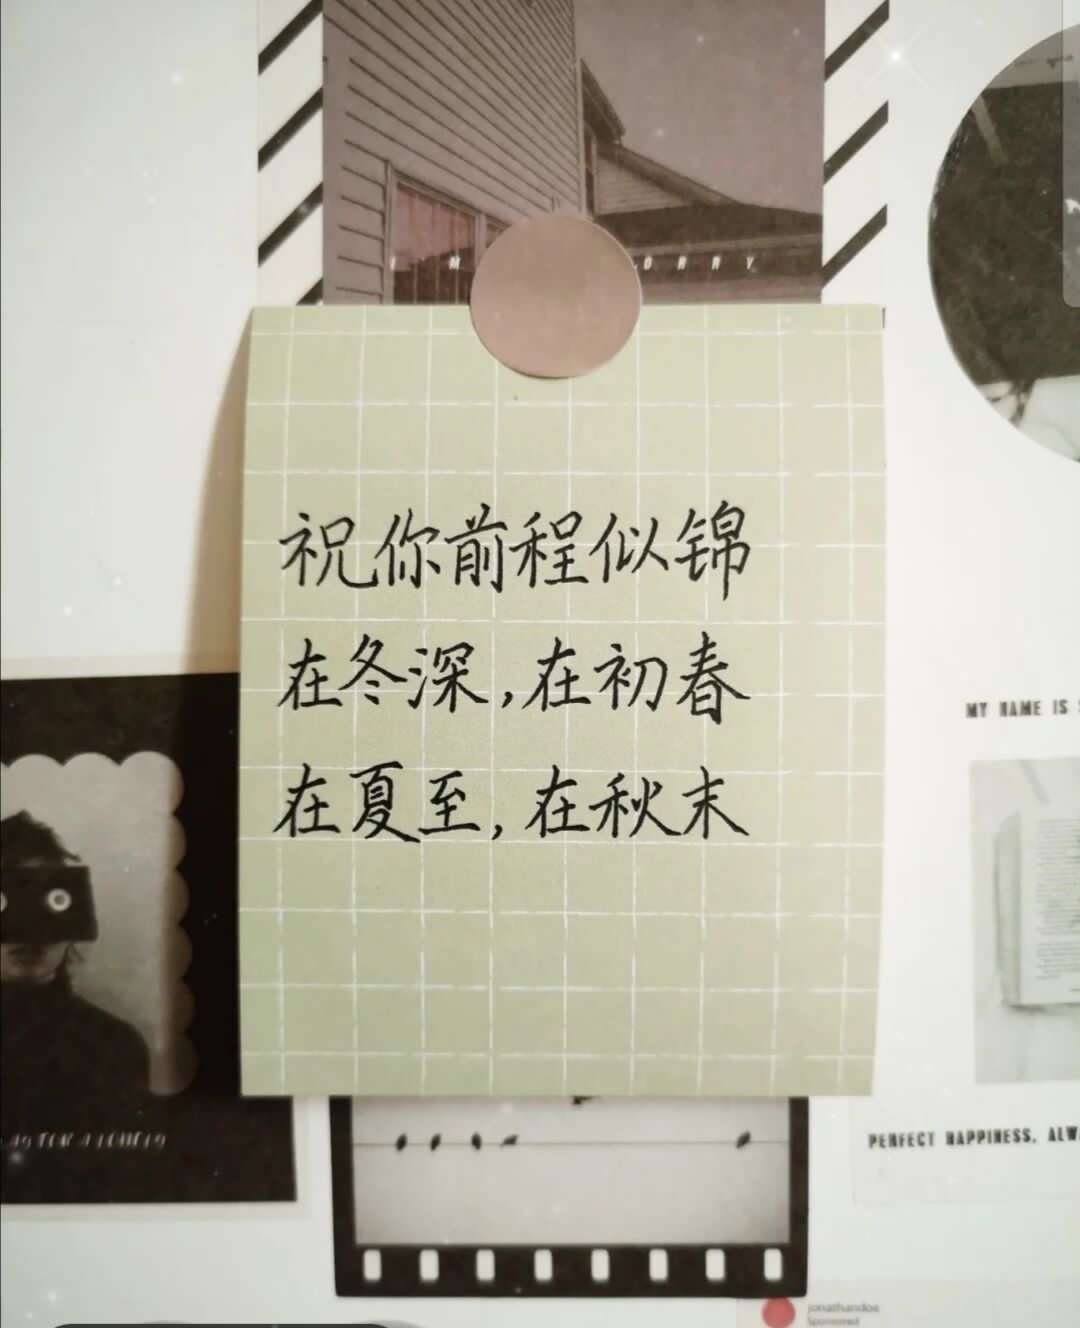 祝你前程似锦
在冬深,在初春
在夏至,在秋末
MY NAME IS
PERFECT HAPPINESS,
jonathandoe
Sponsored